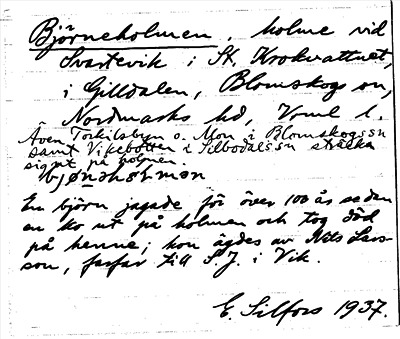 Björneholmen, holme vid
Svartevik i St. Krokvattnet,
i Gilldalen, Blomskogs sn,
Nordmarks hd, Vrml l.
Även Torkilsbyn o. Mon i Blomskogssn
samt Vikebotten i Silbodalssn sträcka
sig ut på holmen.
En björn jagade för över 100 år sedan
en ko ut på holmen och tog död
på henne; kon ägdes av Nils Lars-
son, farfar till S.J. i Vik.
E. Silfors 1937.